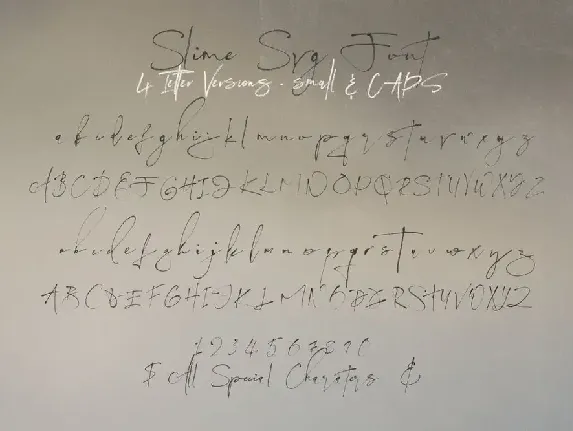 Slime Svg Font
4 letter Versions - small & CAPS
a b c d e f g h i j k l m n o p q r s t u v w x y z
A B C D E F G H I J K L M N O P Q R S T U V W X Y Z
a b c d e f g h i j k l m n o p q r s t u v w x y z
A B C D E F G H I J K L M N O P Q R S T U V W X Y Z
1 2 3 4 5 6 7 8 9 0
$ All Special Charaters &